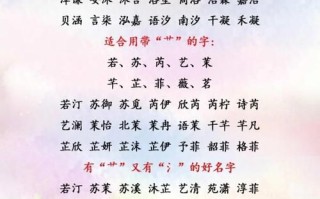 贝涵 言柒 泓嘉 语汐 南汐 干凝 禾凝
适合用带“艹”的字:
若、苏、芮、艺、茉
芊、芷、菲、薇、茗
若汀 苏御 苏觅 芮伊 欣芮 芮柠 诗芮
艺澜 茉怡 北茉 芮冉 语茉 干芊 芊凡
芷欣 芷妍 芷沫 芷伊 于菲 韶菲 格菲
有“艹”又有“氵”的好名字
若汀 苏茉 苏溪 沐芷 艺清 苑潇 淳菲